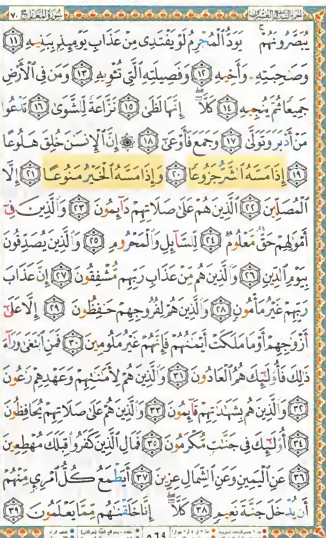 الجزء التاسع والعشرون سورة المعارج ٧٠
يُبَصَّرُونَهُمْ ۚ يَوَدُّ ٱلْمُجْرِمُ لَوْ يَفْتَدِى مِنْ عَذَابِ يَوْمِئِذٍۭ بِبَنِيهِ ﴿١١﴾
وَصَٰحِبَتِهِۦ وَأَخِيهِ ﴿١٢﴾ وَفَصِيلَتِهِ ٱلَّتِى تُـْٔوِيهِ ﴿١٣﴾ وَمَن فِى ٱلْأَرْضِ
جَمِيعًا ثُمَّ يُنجِيهِ ﴿١٤﴾ كَلَّآ ۖ إِنَّهَا لَظَىٰ ﴿١٥﴾ نَزَّاعَةً لِّلشَّوَىٰ ﴿١٦﴾ تَدْعُوا۟
مَنْ أَدْبَرَ وَتَوَلَّىٰ ﴿١٧﴾ وَجَمَعَ فَأَوْعَىٰٓ ﴿١٨﴾ ۞ إِنَّ ٱلْإِنسَٰنَ خُلِقَ هَلُوعًا
﴿١٩﴾ إِذَا مَسَّهُ ٱلشَّرُّ جَزُوعًا ﴿٢٠﴾ وَإِذَا مَسَّهُ ٱلْخَيْرُ مَنُوعًا ﴿٢١﴾ إِلَّا
ٱلْمُصَلِّينَ ﴿٢٢﴾ ٱلَّذِينَ هُمْ عَلَىٰ صَلَاتِهِمْ دَآئِمُونَ ﴿٢٣﴾ وَٱلَّذِينَ فِىٓ
أَمْوَٰلِهِمْ حَقٌّ مَّعْلُومٌ ﴿٢٤﴾ لِّلسَّآئِلِ وَٱلْمَحْرُومِ ﴿٢٥﴾ وَٱلَّذِينَ يُصَدِّقُونَ
بِيَوْمِ ٱلدِّينِ ﴿٢٦﴾ وَٱلَّذِينَ هُم مِّنْ عَذَابِ رَبِّهِم مُّشْفِقُونَ ﴿٢٧﴾ إِنَّ عَذَابَ
رَبِّهِمْ غَيْرُ مَأْمُونٍ ﴿٢٨﴾ وَٱلَّذِينَ هُمْ لِفُرُوجِهِمْ حَٰفِظُونَ ﴿٢٩﴾ إِلَّا عَلَىٰٓ
أَزْوَٰجِهِمْ أَوْ مَا مَلَكَتْ أَيْمَٰنُهُمْ فَإِنَّهُمْ غَيْرُ مَلُومِينَ ﴿٣٠﴾ فَمَنِ ٱبْتَغَىٰ وَرَآءَ
ذَٰلِكَ فَأُو۟لَٰٓئِكَ هُمُ ٱلْعَادُونَ ﴿٣١﴾ وَٱلَّذِينَ هُمْ لِأَمَٰنَٰتِهِمْ وَعَهْدِهِمْ رَٰعُونَ
﴿٣٢﴾ وَٱلَّذِينَ هُم بِشَهَٰدَٰتِهِمْ قَآئِمُونَ ﴿٣٣﴾ وَٱلَّذِينَ هُمْ عَلَىٰ صَلَاتِهِمْ يُحَافِظُونَ
﴿٣٤﴾ أُو۟لَٰٓئِكَ فِى جَنَّٰتٍ مُّكْرَمُونَ ﴿٣٥﴾ فَمَالِ ٱلَّذِينَ كَفَرُوا۟ قِبَلَكَ مُهْطِعِينَ
﴿٣٦﴾ عَنِ ٱلْيَمِينِ وَعَنِ ٱلشِّمَالِ عِزِينَ ﴿٣٧﴾ أَيَطْمَعُ كُلُّ ٱمْرِئٍ مِّنْهُمْ
أَن يُدْخَلَ جَنَّةَ نَعِيمٍ ﴿٣٨﴾ كَلَّآ ۖ إِنَّا خَلَقْنَٰهُم مِّمَّا يَعْلَمُونَ ﴿٣٩﴾
٥٦٩